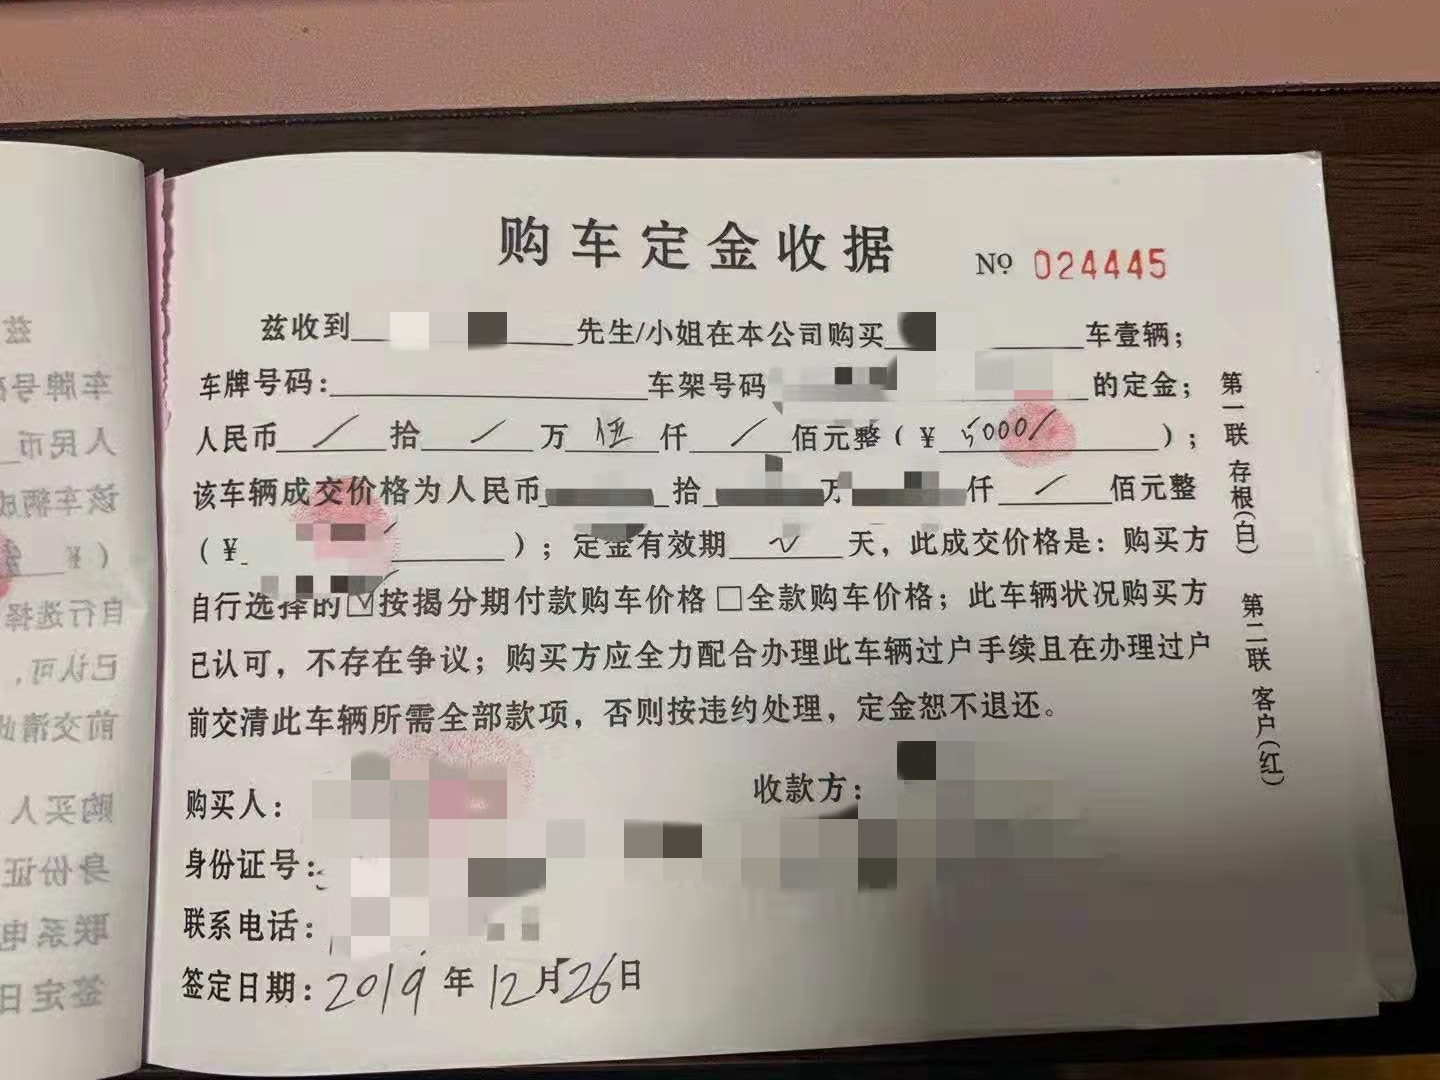 购车定金收据
No 024445
兹收到 先生/小姐在本公司购买 车壹辆；
车牌号码： 车架号码 的定金；
人民币 / 拾 / 万 伍 仟 / 佰元整（¥ 5000/ ）；
该车辆成交价格为人民币 拾 万 仟 / 佰元整
（¥ ）；定金有效期 天，此成交价格是：购买方
自行选择的☑按揭分期付款购车价格□全款购车价格；此车辆状况购买方
已认可，不存在争议；购买方应全力配合办理此车辆过户手续且在办理过户
前交清此车辆所需全部款项，否则按违约处理，定金恕不退还。
购买人：
收款方：
身份证号：
联系电话：
签定日期：2019年12月26日
第一联 存根(白)
第二联 客户(红)
兹
车牌号码
人民币
该车辆成
（¥
自行选择
已认可，
前交清此
购买人
身份证
联系电
签定日